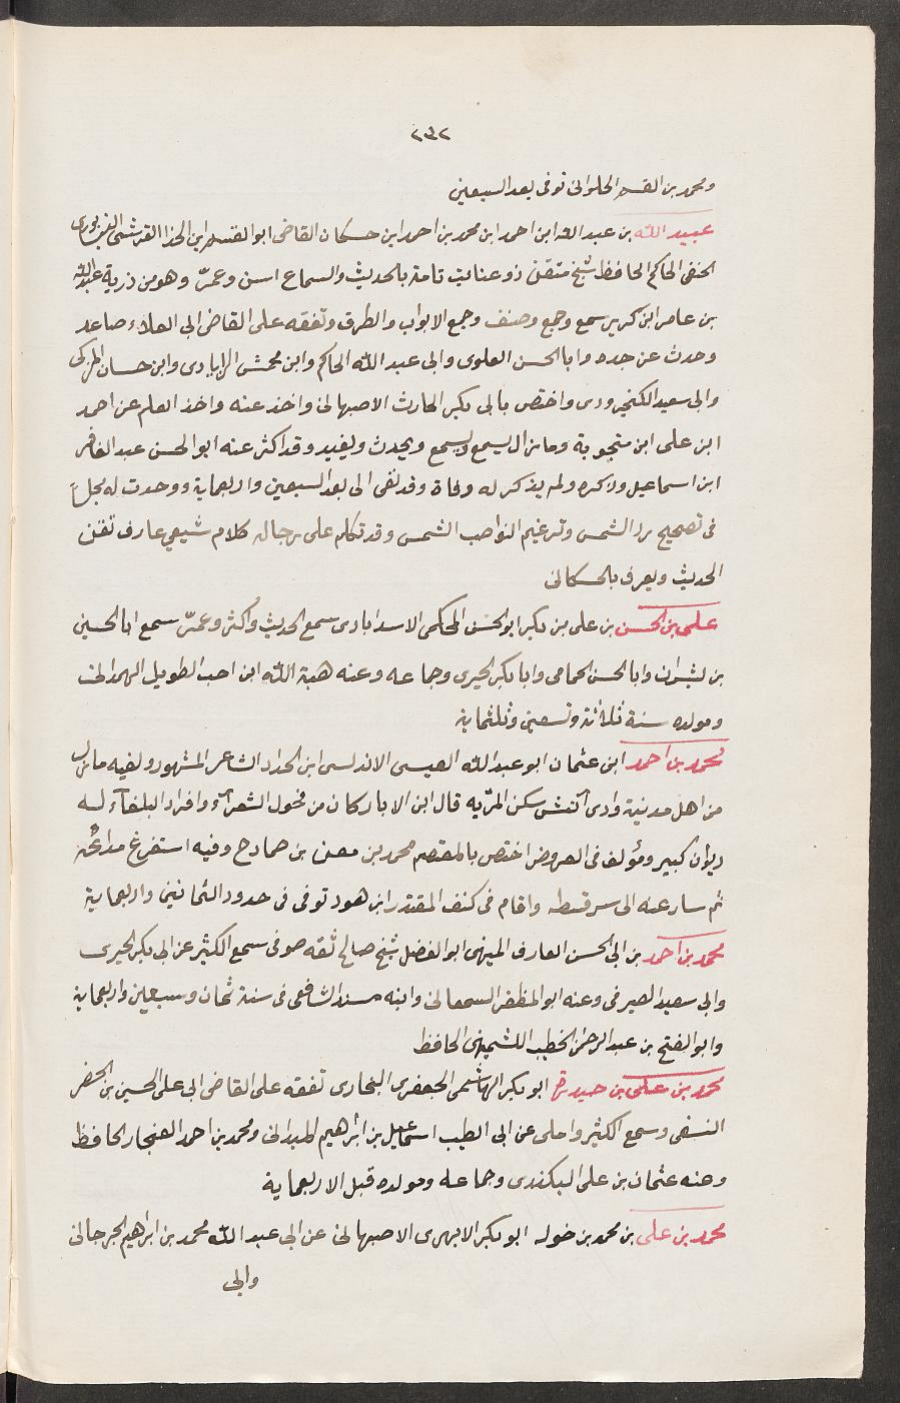 ٢٣٢
ومحمد بن القسم الحلوانى توفى بعد السبعين
عبيد الله بن عبد الله ابن احمد ابن محمد بن احمد ابن حسكان القاضى ابو القسم ابن الحذا القرشى النيسابورى
الحنفى الحاكم الحافظ شيخ متقن ذو عناية تامة بالحديث والسماع اسن وعمّر وهو من ذرية عبد الله
بن عامر ابن كريز سمع وجمع وصنف وجمع الابواب والطرق وتفقه على القاضى ابى العلاء صاعد
وحدث عن جده وابا الحسن العلوى وابى عبد الله الحاكم وابن محمش الزيادى وابن حسان المزكى
وابى سعيد الكنجرودى واختص بابى بكر الحارث الاصبهانى واخذ عنه واخذ العلم عن احمد
ابن على ابن منجوية وما زال يسمع ويسمع ويحدث ويفيد وقد اكثر عنه ابو الحسن عبد الغافر
ابن اسماعيل وذكره ولم يذكر له وفاة وقد بقى الى بعد السبعين واربعماية ووجدت له مجلسا
فى تصحيح رد الشمس وترغيم النواصب الشمس وقد تكلم على رجاله كلام شيعي عارف بفن
الحديث ويعرف بالحسكانى
على بن الحسن بن على بن بكر ابو الحسن المحكمى الاسدابادى سمع الحديث واكثر وعمّر سمع ابا الحسين
بن بشران وابا الحسن الحمامى وابا بكر الحيرى وجماعه وعنه هبة الله ابن اخت الطويل الهمدانى
ومولده سنة ثلاثة وتسعين وثلثماية
محمد بن احمد ابن عثمان ابو عبد الله القيسى الاندلسى ابن الحداد الشاعر المشهور ولقبه مازن
من اهل مدينة وادى آش سكن المريه قال ابن الابار كان من فحول الشعرآء وافراد البلغآء له
ديوان كبير ومؤلف فى العروض اختص بالمعتصم محمد بن معن بن صمادح وفيه استفرغ مدائحه
ثم سار عنه الى سرقسطه واقام فى كنف المقتدر ابن هود توفى فى حدود الثمانين واربعماية
محمد بن احمد بن ابى الحسن العارف الميهنى ابو الفضل شيخ صالح ثقه صوفى سمع الكثير عن ابى بكر الحيرى
وابى سعيد الصيرفى وعنه ابو المظفر السمعانى وابنه مسند الشافعى فى سنة ثمان وسبعين واربعماية
وابو الفتح بن عبد الرحمن الخطيب الكشميهنى الحافظ
محمد بن على بن حيدرة ابو بكر الهاشمى الجعفرى البخارى تفقه على القاضى ابى على الحسين بن الخضر
النسفى وسمع الكثير واملى عن ابى الطيب اسماعيل بن ابرهيم الميدانى ومحمد بن احمد الغنجار الحافظ
وعنه عثمان بن على البيكندى وجماعه ومولده قبل الاربعماية
محمد بن على بن محمد بن خوله ابو بكر الابهرى الاصبهانى عن ابى عبد الله محمد بن ابراهيم الجرجانى
وابى